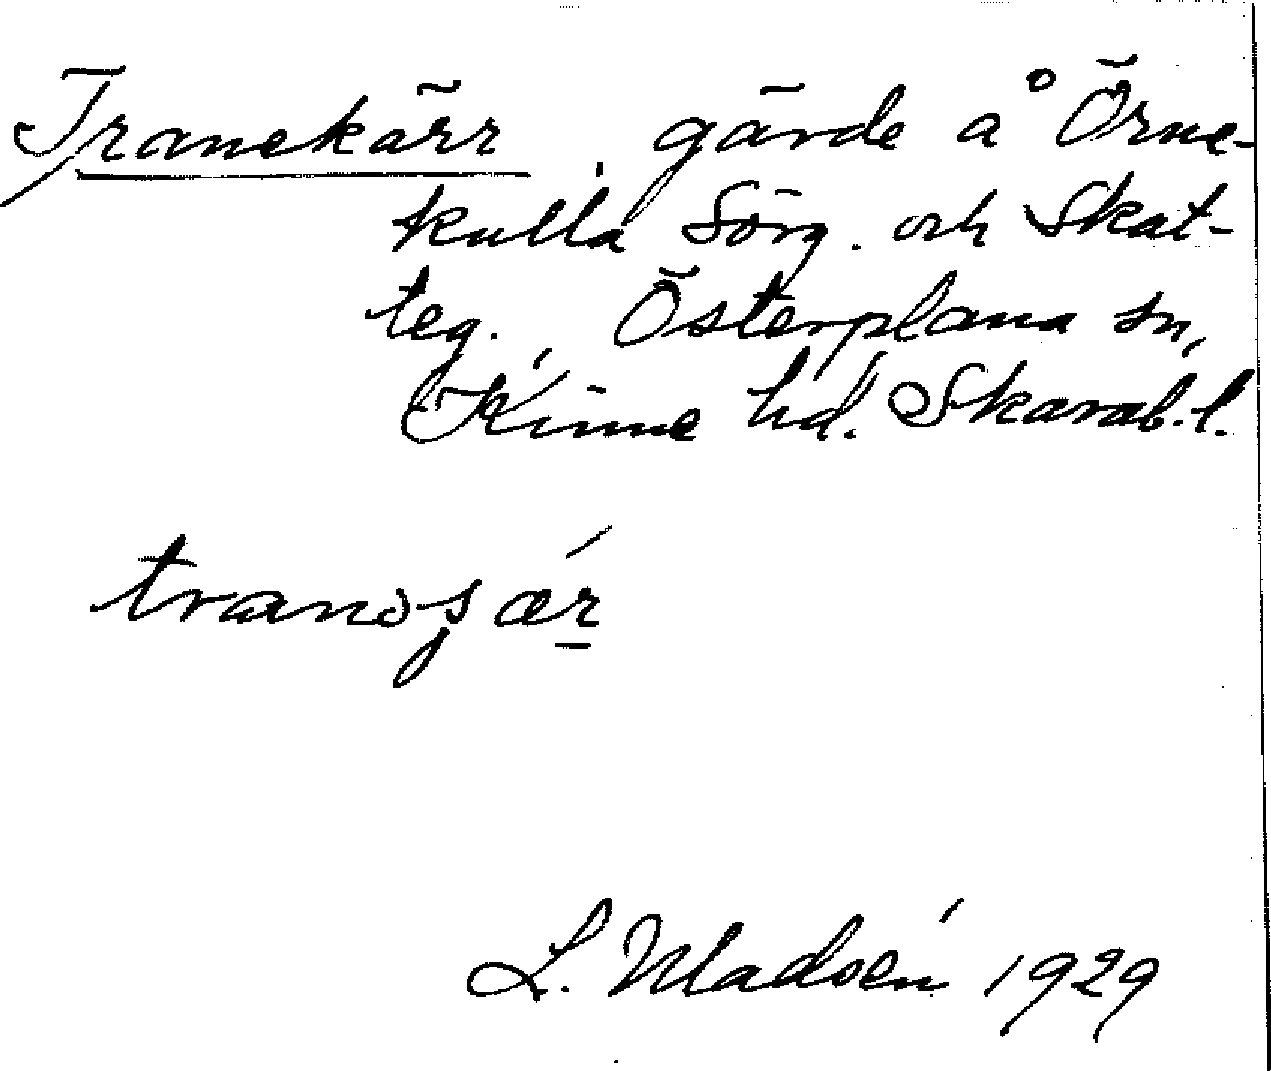 Tranekärr, gärde å Örne-
kulla Sörg. och Skat-
teg. Österplana sn,
Kinne hd. Skarab. l.
L. Madsén 1929